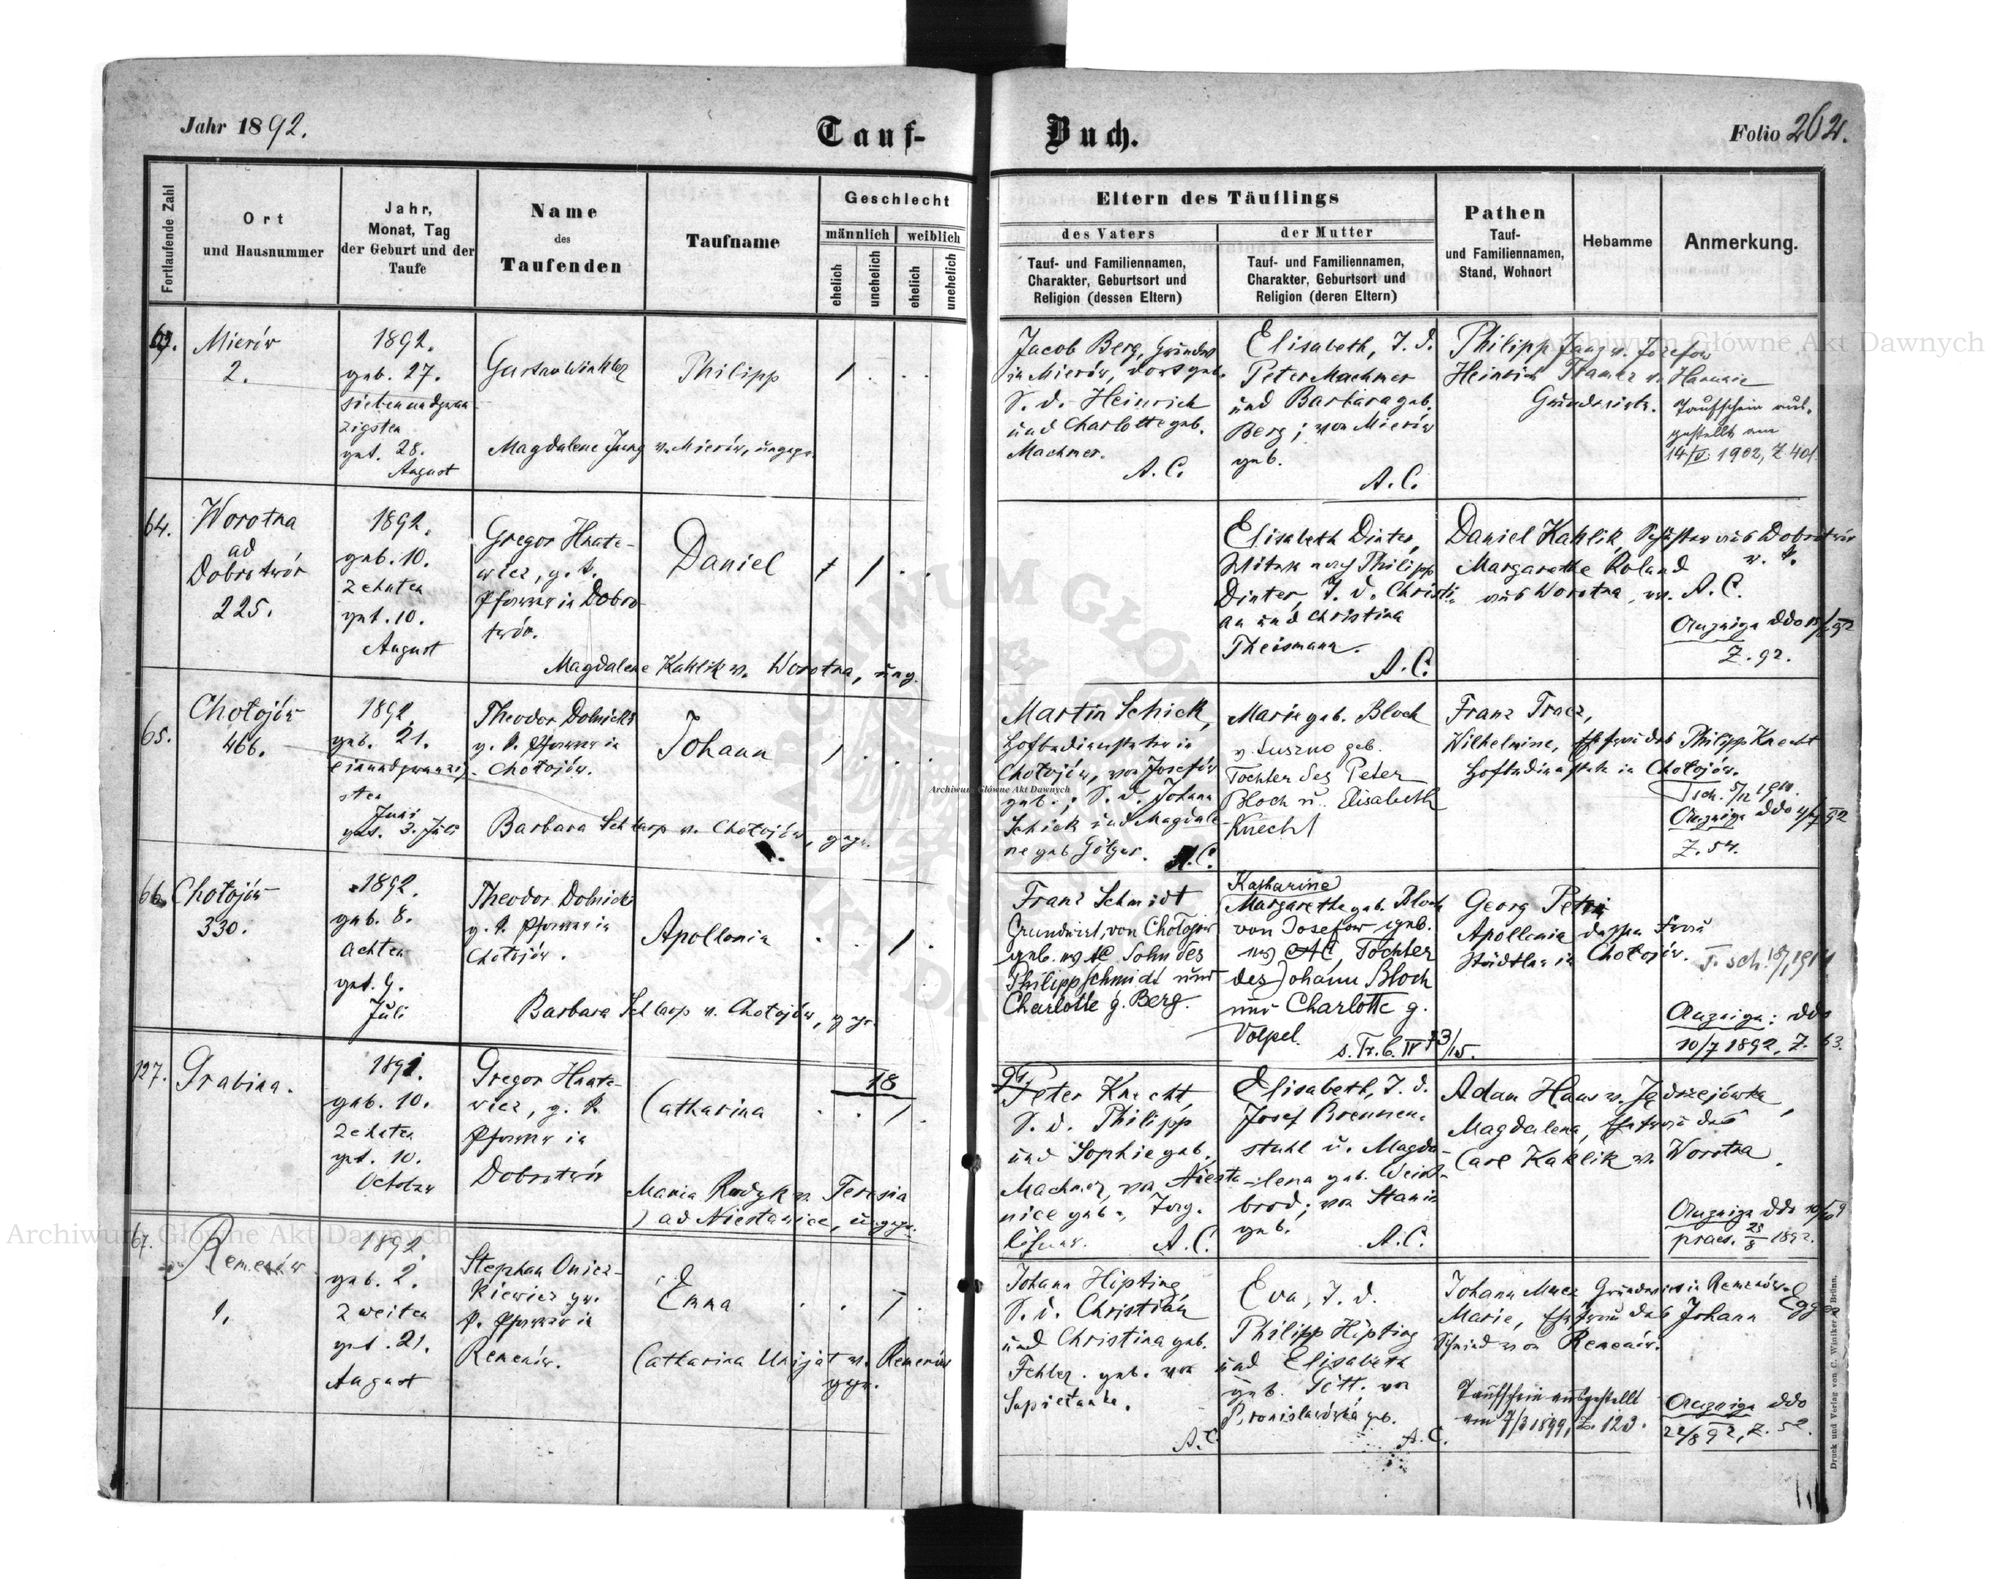 Jahr 1892.
Tauf-Buch.
Folio 262.
Fortlaufende Zahl
Ort
und Hausnummer
Jahr,
Monat, Tag
der Geburt und der
Taufe
Name
des
Taufenden
Taufname
Geschlecht
männlich
weiblich
ehelich
unehelich
ehelich
unehelich
Eltern des Täuflings
des Vaters
der Mutter
Tauf- und Familiennamen,
Charakter, Geburtsort und
Religion (dessen Eltern)
Tauf- und Familiennamen,
Charakter, Geburtsort und
Religion (deren Eltern)
Pathen
Tauf-
und Familiennamen,
Stand, Wohnort
Hebamme
Anmerkung.
Mierów
2.
1892.
geb. 27.
siebenundzwan
zigsten
get. 28.
August
Gustav Winkler
Magdalene Jung v. Mierów, ungepr.
Philipp
Jacob Berg, Grundw.
in Mierów, dort geb.
S. d. Heinrich
und Charlotte geb.
Machmer.
A. C.
Elisabeth, T. d.
Peter Machmer
und Barbara geb.
Berg; von Mierów
geb.
A. C.
Philipp Jung v. Józefow
Heinrich
Grundwirte.
Taufschein aus-
gestellt am
14/V. 1902, Z 401
64.
Worotna
ad
Dobrotwór
225.
1892.
geb. 10.
zehnten
get. 10.
August
Gregor Hnate-
wicz, g. k.
Pfarrer in Dobro-
twór.
Magdalene Kahlik v. Worotna, ung.
Daniel
Elisabeth Dinter,
Witwe nach Philipp
Dinter, T. d. Christi-
an und Christina
Theismann.
A. C.
Daniel Kahlik, Schuster aus Dobrotwór
Margarethe Roland
aus Worotna, A. C.
Anzeige ddo
Z. 92.
65.
Chołojów
466.
1892.
geb. 21.
einundzwanzig-
sten
Juni
get. 3. Juli
Theodor Dolnicki
g. k. Pfarrer in
Chołojów.
Barbara Schlarp v. Chołojów, gepr.
Johann
Martin Schick,
Hofbediensteter in
Chołojów, von Josefów
geb.; S. d. Johann
Schick und Magdale-
ne geb Götger.
A. C.
Marie geb. Bloch
geb.
Tochter des Peter
Bloch u. Elisabeth
Knecht
Franz Tracz,
Wilhelmine, Ehefrau des Philipp Knecht
Hofbedienstete in Chołojów.
Anzeige ddo
Z. 54.
66.
Chołojów
330.
1892.
geb. 8.
achten
get. 9.
Juli
Theodor Dolnicki
g. k. Pfarrer in
Chołojów.
Barbara Schlarp v. Chołojów, gepr.
Apollonia
Franz Schmidt
Grundwirt, von Chołojów
geb. ev AC Sohn des
Philipp Schmidt und
Charlotte g. Berg.
Katharine
Margarethe geb. Bloch
von Josefow geb.
ev AC, Tochter
des Johann Bloch
und Charlotte g.
Volpel.
Georg Petri
Apollonia dessen Frau
in Chołojów.
Anzeige: ddo
10/7 1892, Z. 63.
127.
Grabina.
1891.
geb. 10.
zehnten
get. 10.
October
Gregor Hnate-
wicz, g. k.
Pfarrer in
Dobrotwór
Catharina
18
91
Maria Rudyk v. Teresia
ad Niestanice, ungepr.
Peter Knecht,
S. d. Philipp
und Sophie geb.
Machmer, von Niesta-
nice geb.,
A. C.
Elisabeth, T. d.
Josef Brennen-
stuhl u. Magda-
lena geb. Weins-
brod; von Stanin
geb.
A. C.
Adam Haus v. Jędrzejówka,
Magdalena, Ehefrau des
Carl Kahlik v. Worotna.
Anzeige ddo
praes. 25/8 1892.
67.
Remenów
1.
1892.
geb. 2.
zweiten
get. 21.
August
Stephan Onisz-
kiewicz gr.
k. Pfarrer in
Remenów.
Catharina Unijat v. Remenów
gepr.
Emma
Johann Hipting
S. d. Christian
und Christina geb.
Fehler. geb. von
Sapieżanka.
A. C.
Eva, T. d.
Philipp Hipting
und Elisabeth
geb. Gött; von
Bronisławówka geb.
A. C.
Johann Grundwirt in Remenów.
Marie, Ehefrau des Johann Egger
Schmied von Remenów.
Taufschein ausgestellt
am 7/3 1899, Z. 123.
Anzeige ddo
22/8 92, Z. 52.
Druck und Verlag von C. Winiker, Brünn.
Archiwum Główne Akt Dawnych
Archiwum Główne Akt Dawnych
Archiwum Główne Akt Dawnych